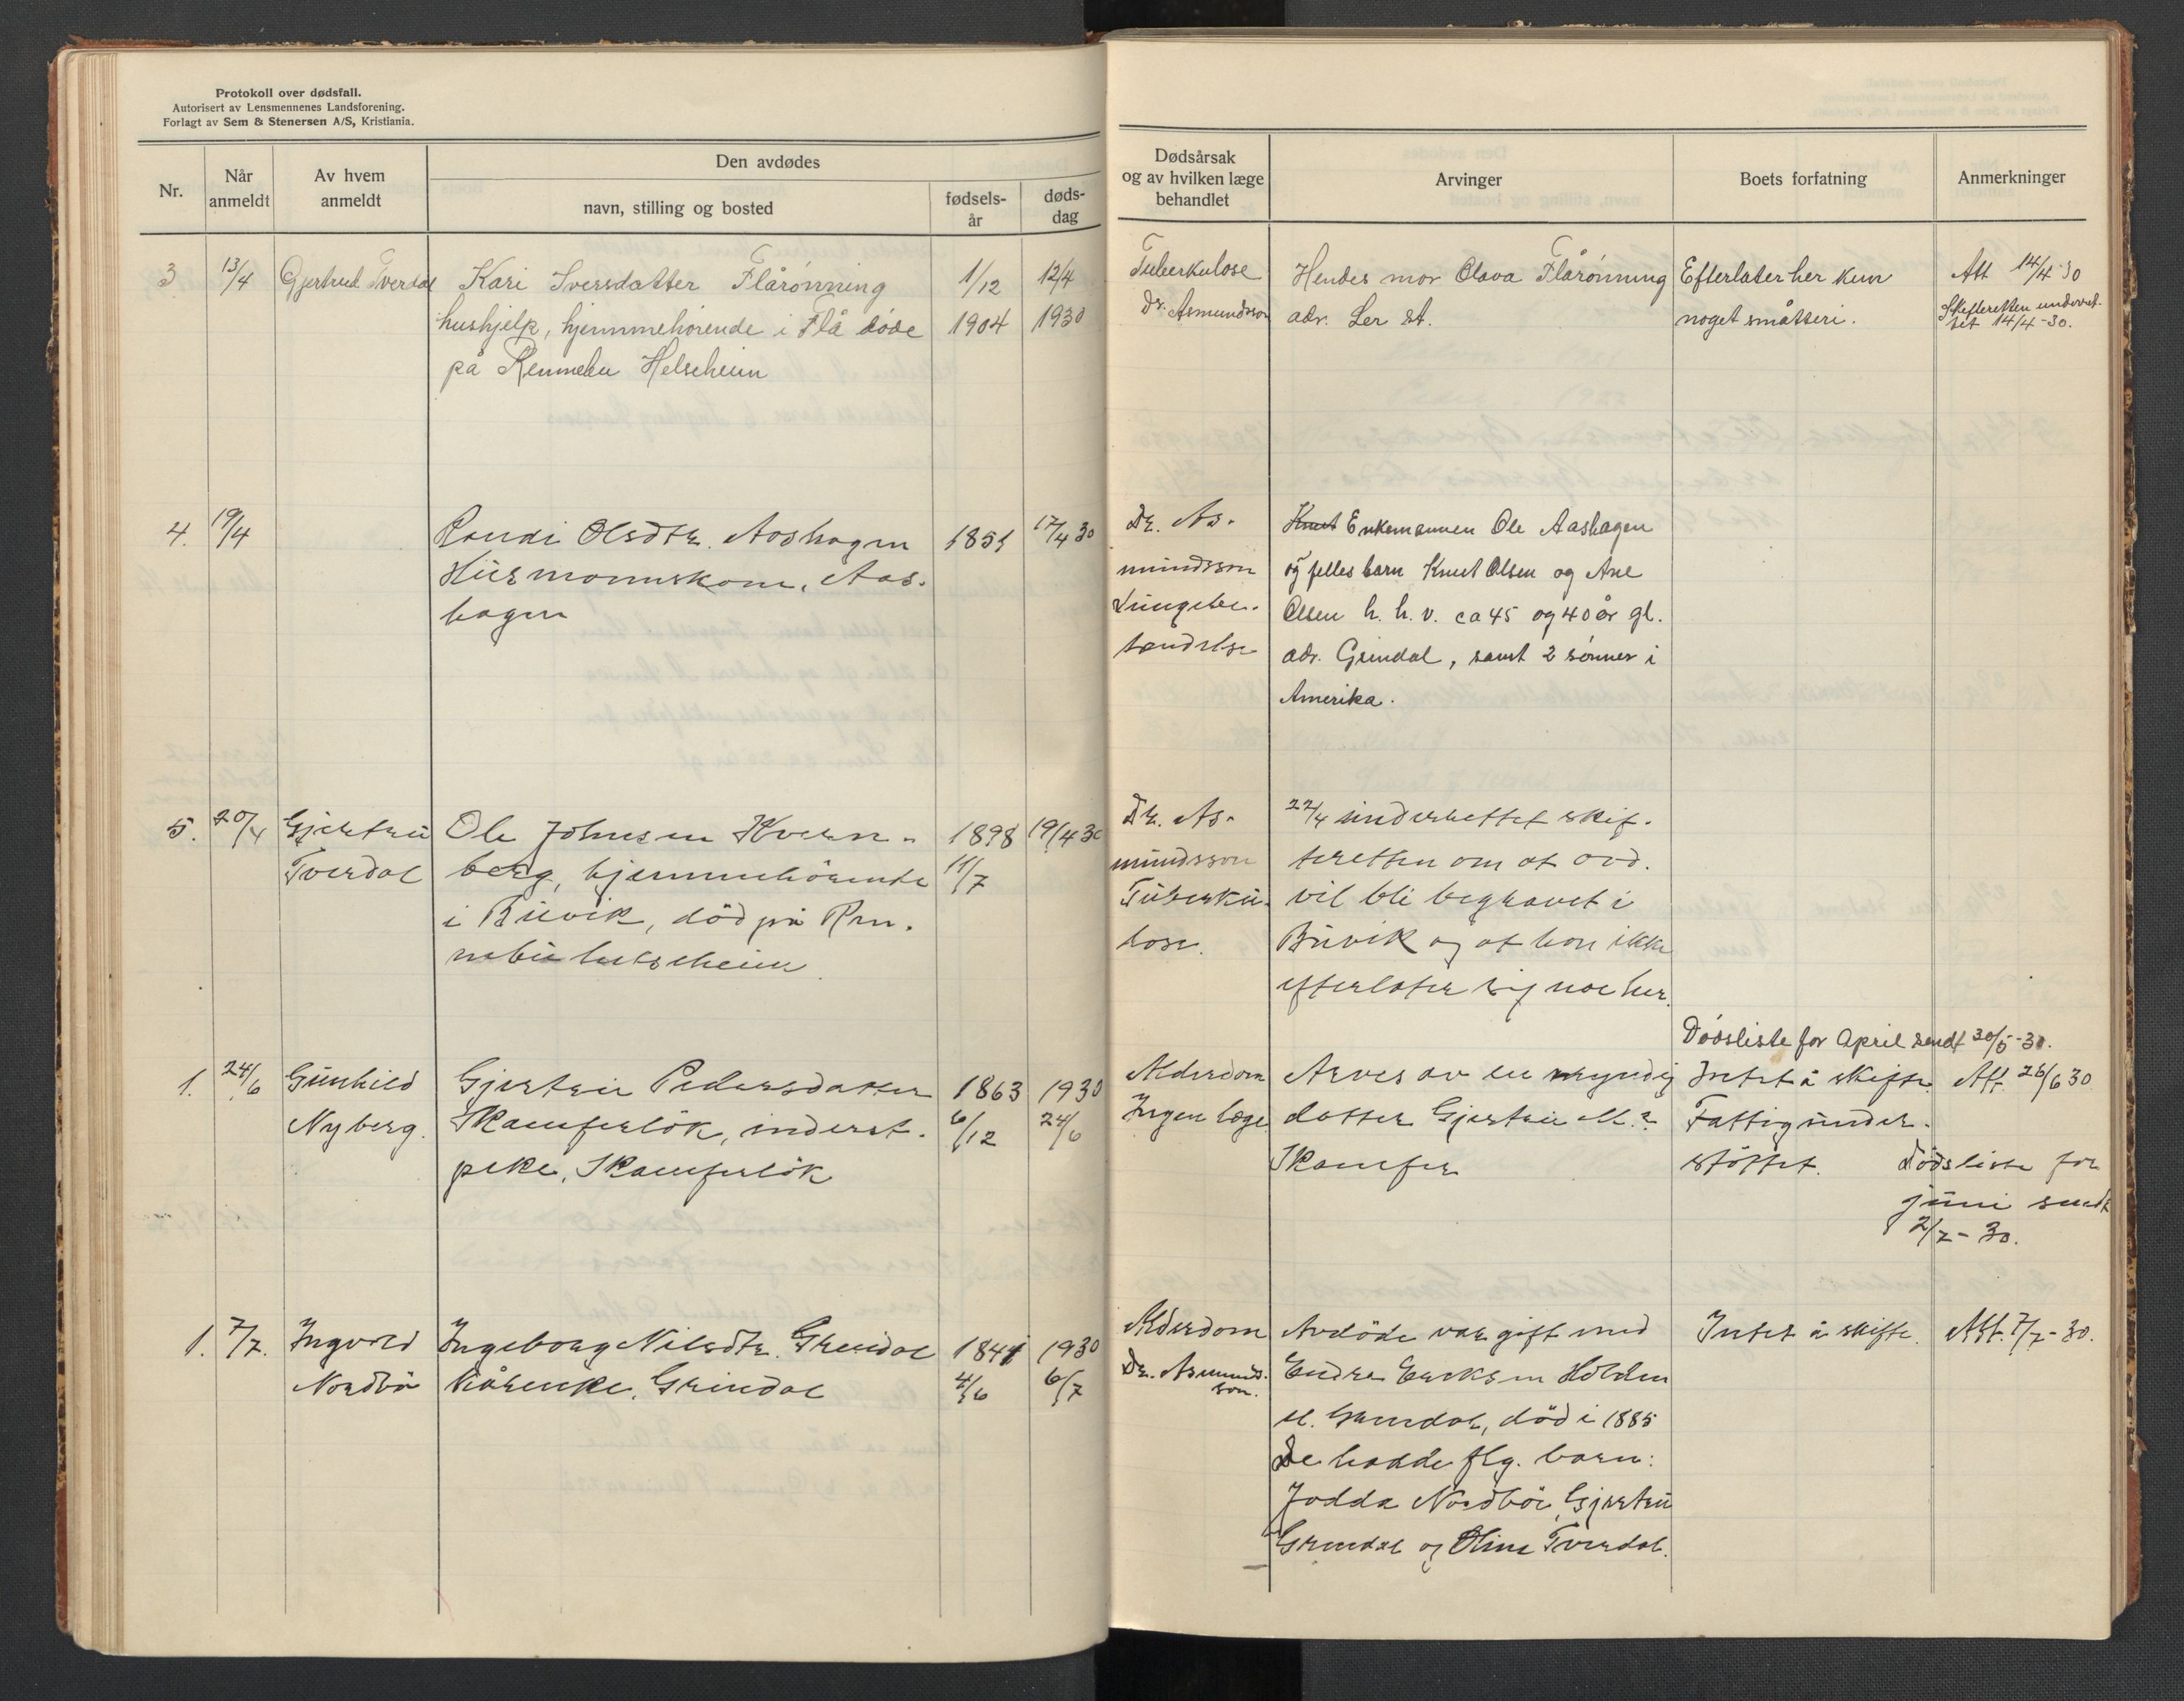 Protokoll over dødsfall.
Autorisert av Lensmennenes Landsforening.
Forlagt av Sem & Stenersen A/S, Kristiania.
Nr.
Når anmeldt
Av hvem anmeldt
Den avdødes
navn, stilling og bosted
fødsels-
år
døds-
dag
Dødsårsak
og av hvilken læge
behandlet
Arvinger
Boets forfatning
Anmerkninger
3 13/4 Gjertrud Tverdal Kari Iversdatter Flårønning 1/12 12/4
hushjelp, hjemmehørende i Flå døde 1904 1930
på Rennebu Helseheim
Tuberkulose
Dr. Asmundsson
Hendes mor Olava Flårønning
adr. Ler st.
Efterlater her kun
noget småtteri.
Att 14/4-30
Skifteretten underret-
tet 14/4-30.
4. 19/4 Randi Olsdtr. Aashagen 1851 17/4 30
Husmannskone, Aas-
hagen
Dr. As-
mundsson
Lungebe-
tendelse
Knut Enkemannen Ole Aashagen
og felles barn Knut Olsen og Ane
Olsen h. h. v. ca 45 og 40 år gl.
adr. Grindal, samt 2 sønner i
Amerika.
5. 20/4 Gjertru Ole Johnsen Kvern- 1898 19/4 30
Tverdal berg, hjemmehörende 11/7
i Buvik, död på Ren-
nebu helseheim
Dr. As-
mundsson
Tuberku-
lose.
22/4 underrettet skif-
teretten om at avd.
vil bli begravet i
Buvik og at han ikke
efterlater sig noe her.
Dødsliste for April sendt 30/5-30.
1. 24/6 Gunhild Gjertru Pedersdatter 1863 1930
Nyberg. Skamferlök, inderst- 6/12 24/6
pike, Skamferlök
Alderdom
Ingen læge
Arves av en myndig
datter Gjertru M.?
Skamfer
Intet å skifte.
Fattigunder-
støttet.
Att. 26/6 30
Dödsliste for
juni sendt
2/7-30.
1. 7/7. Ingvald Ingeborg Nilsdtr. Grindal 1841 1930
Nordbö Kårenke, Grindal 4/6 6/7
Alderdom
Dr. Asmunds-
son.
Avdöde var gift med
Endre Eriksen Holden
el. Grindal, död i 1885
De hadde flg. barn:
Jodda Nordbö, Gjertru
Grindal og Oline Tverdal.
Intet å skifte.
Att. 7/7-30.